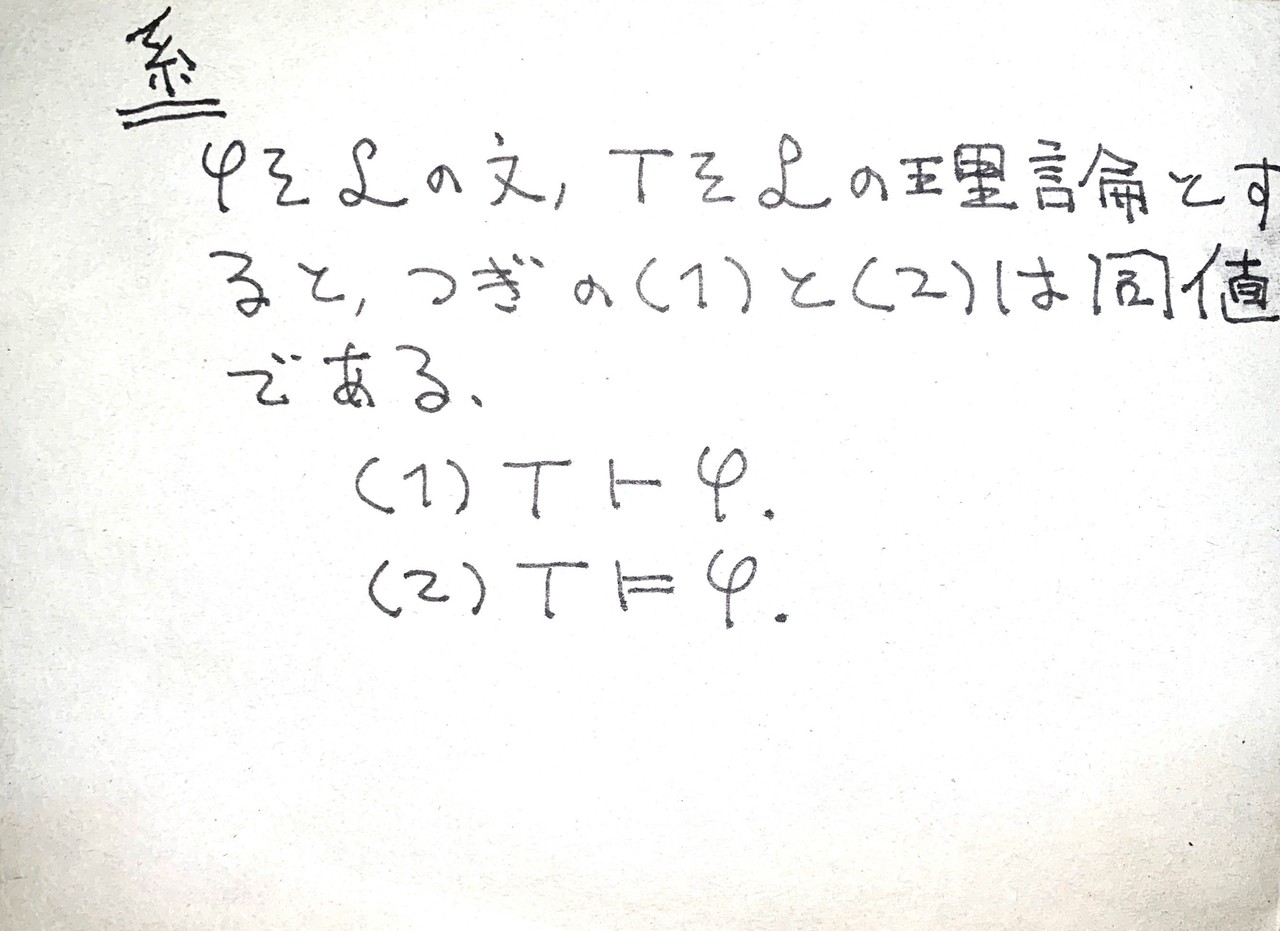 系
φをℒの文, Tをℒの理論とす
ると, つぎの(1)と(2)は同値
である、
(1) T ⊢ φ.
(2) T ⊨ φ.